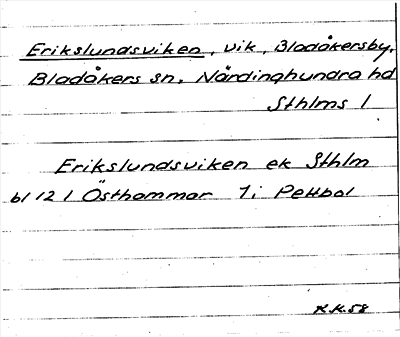 Erikslundsviken, vik, Bladåkersby,
Bladåkers sn. Närdinghundra hd
Sthlms l
Erikslundsviken ek Sthlm
bl 121 Östhammar 7i Pettbol
K.K.58